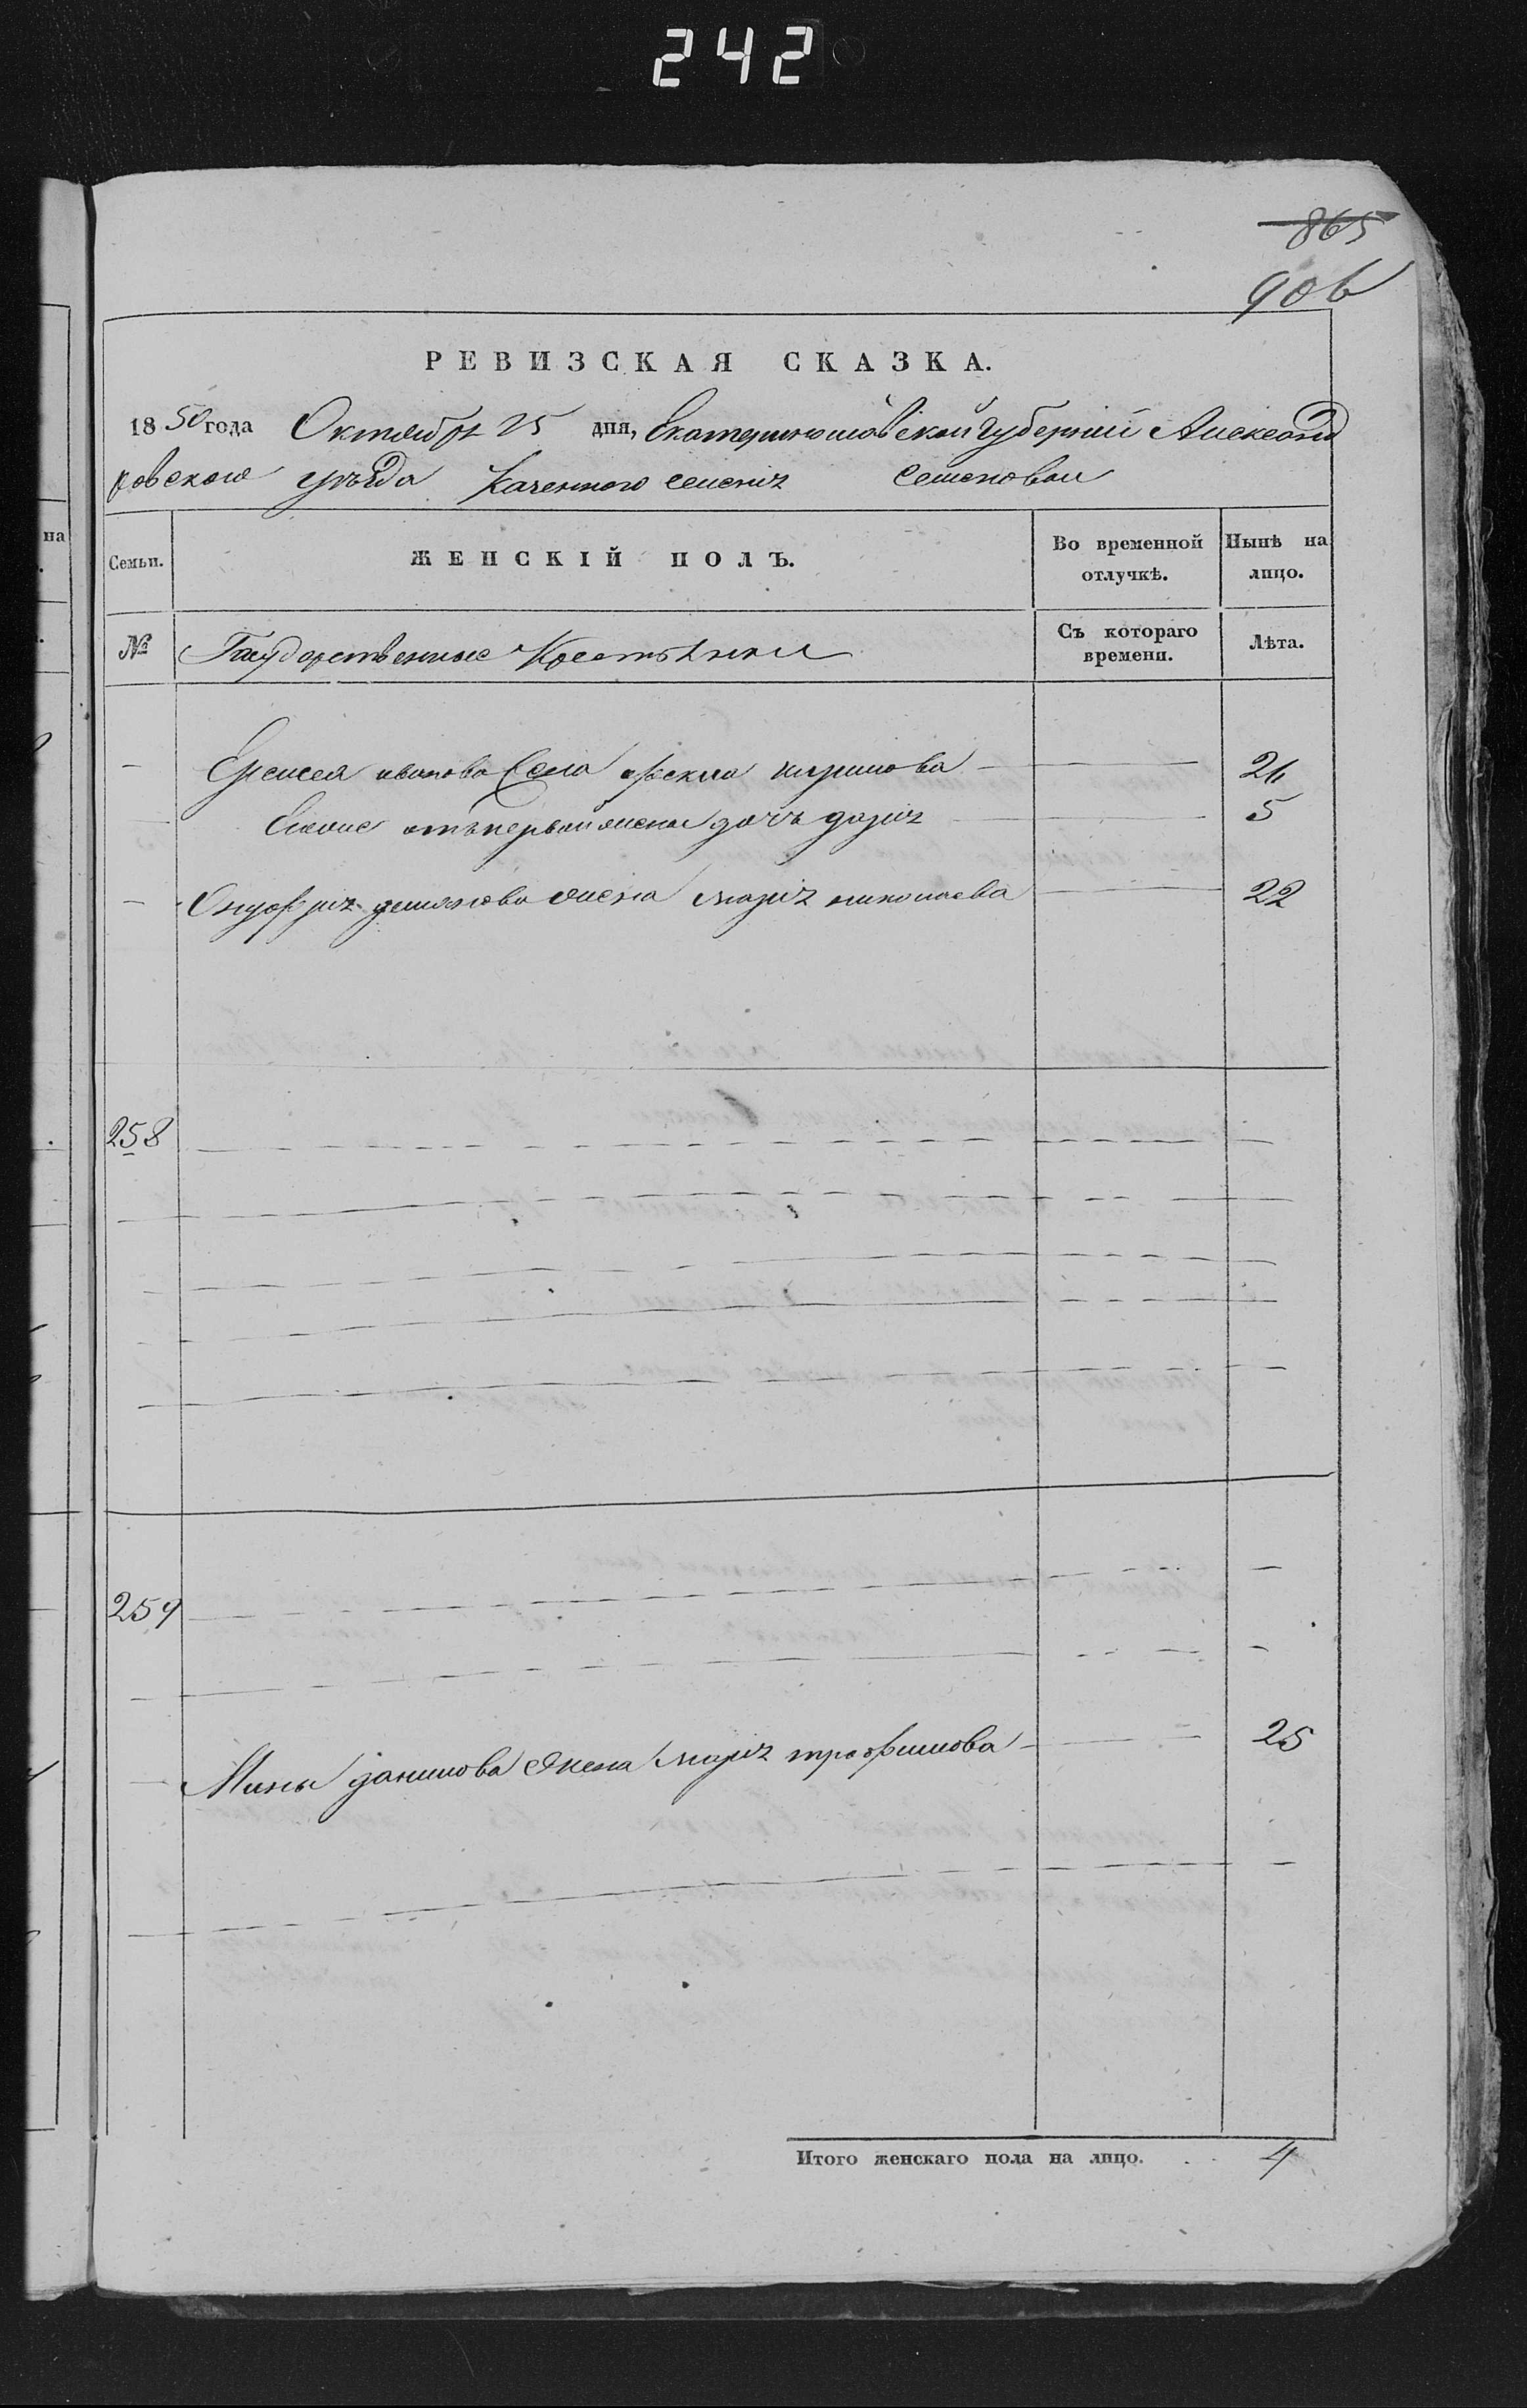 242
865
906
РЕВИЗСКАЯ СКАЗКА.
1850 года Октября 25 дня, Екатеринославской губернии Александ
ровского уезда Казенного селения Семеновки
на
Семьи. ЖЕНСКІЙ ПОЛЪ. Во временной отлучкѣ. Нынѣ на лицо.
№ Государственные Крестьяне Съ котораго времени. Лѣта.
иванова жена фекла 26
отъ первой жены дочь дарья 5
Онуфрия демянова жена марія николаева 22
258
259
Мины данилова жена марія трофимова 25
Итого женскаго пола на лицо. 4